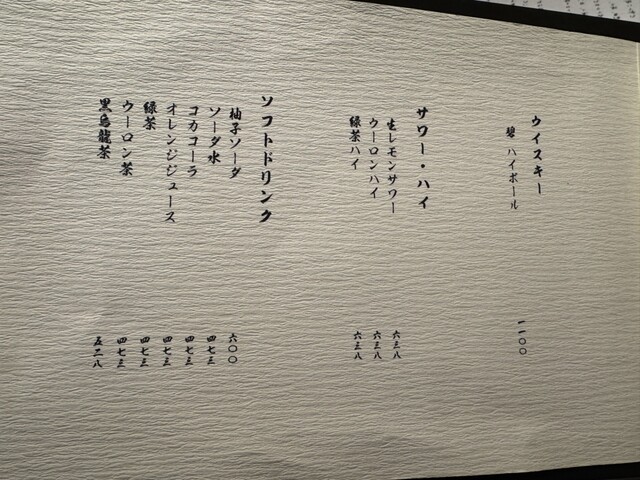 ウイスキー
碧 ハイボール 一一〇〇
サワー・ハイ
生レモンサワー 六三八
ウーロンハイ 六三八
緑茶ハイ 六三八
ソフトドリンク
柚子ソーダ 六〇〇
ソーダ水 四七三
コカコーラ 四七三
オレンジジュース 四七三
緑茶 四七三
ウーロン茶 四七三
黒烏龍茶 五二八